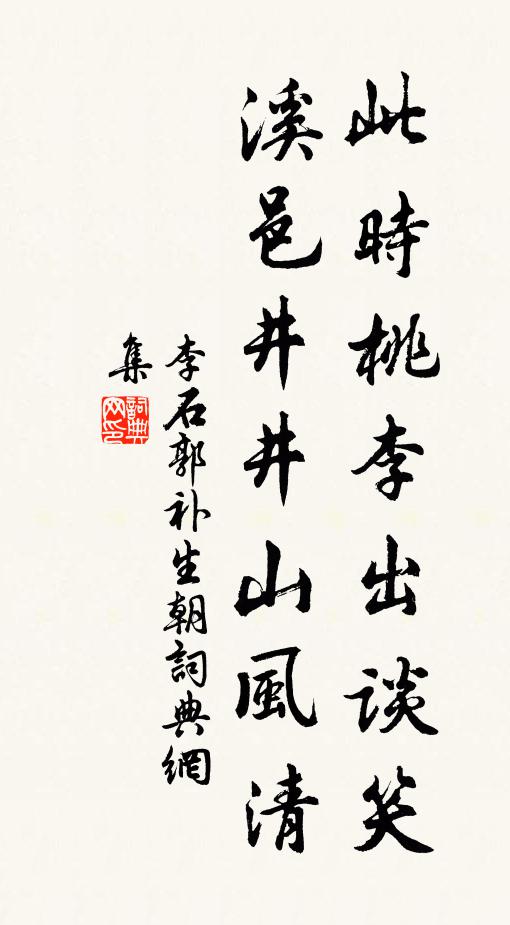 此時桃李出談笑
溪邑井井山風清
李石郭补生朝詞典網
集
詞典
网印